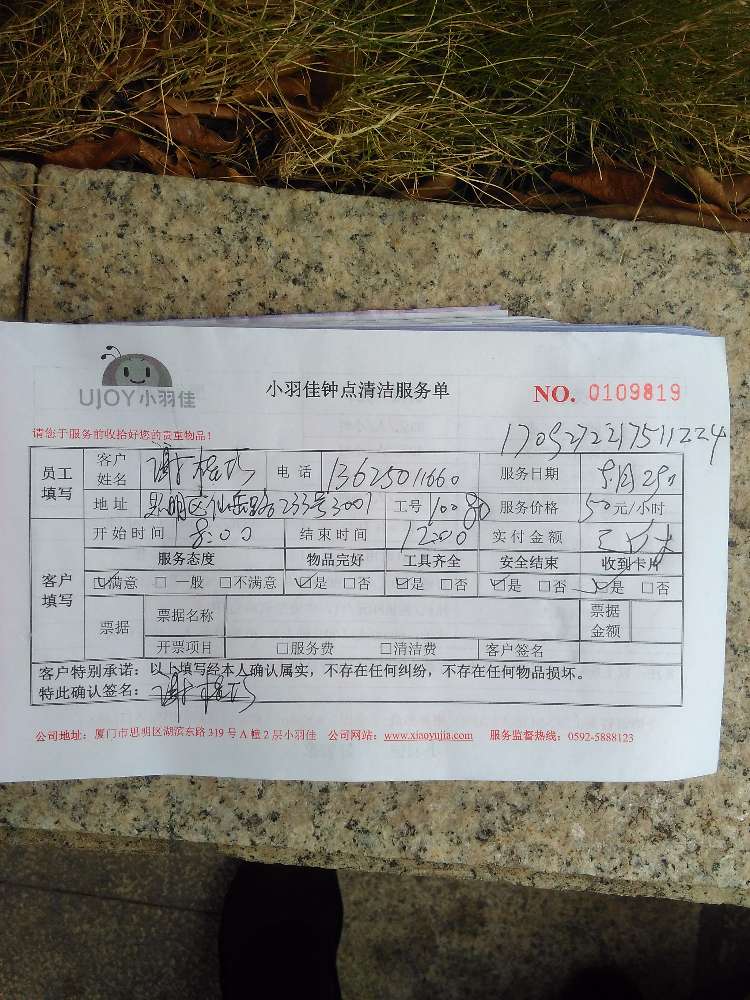 UJOY小羽佳
小羽佳钟点清洁服务单
NO. 0109819
请您于服务前收拾好您的贵重物品!
员工填写 客户姓名 谢 电话 13625011660 服务日期
地址 思明区仙岳路233号3001 工号 10080 服务价格 50元/小时
开始时间 8:00 结束时间 12:00 实付金额
客户填写 服务态度 物品完好 工具齐全 安全结束 收到卡片
☑满意 □一般 □不满意 ☑是 □否 ☑是 □否 ☑是 □否 ☑是 □否
票据 票据名称 票据金额
开票项目 □服务费 □清洁费 客户签名
客户特别承诺:以上填写经本人确认属实,不存在任何纠纷,不存在任何物品损坏。
特此确认签名:谢
公司地址:厦门市思明区湖滨东路319号A幢2层小羽佳 公司网站:www.xiaoyujia.com 服务监督热线:0592-5888123